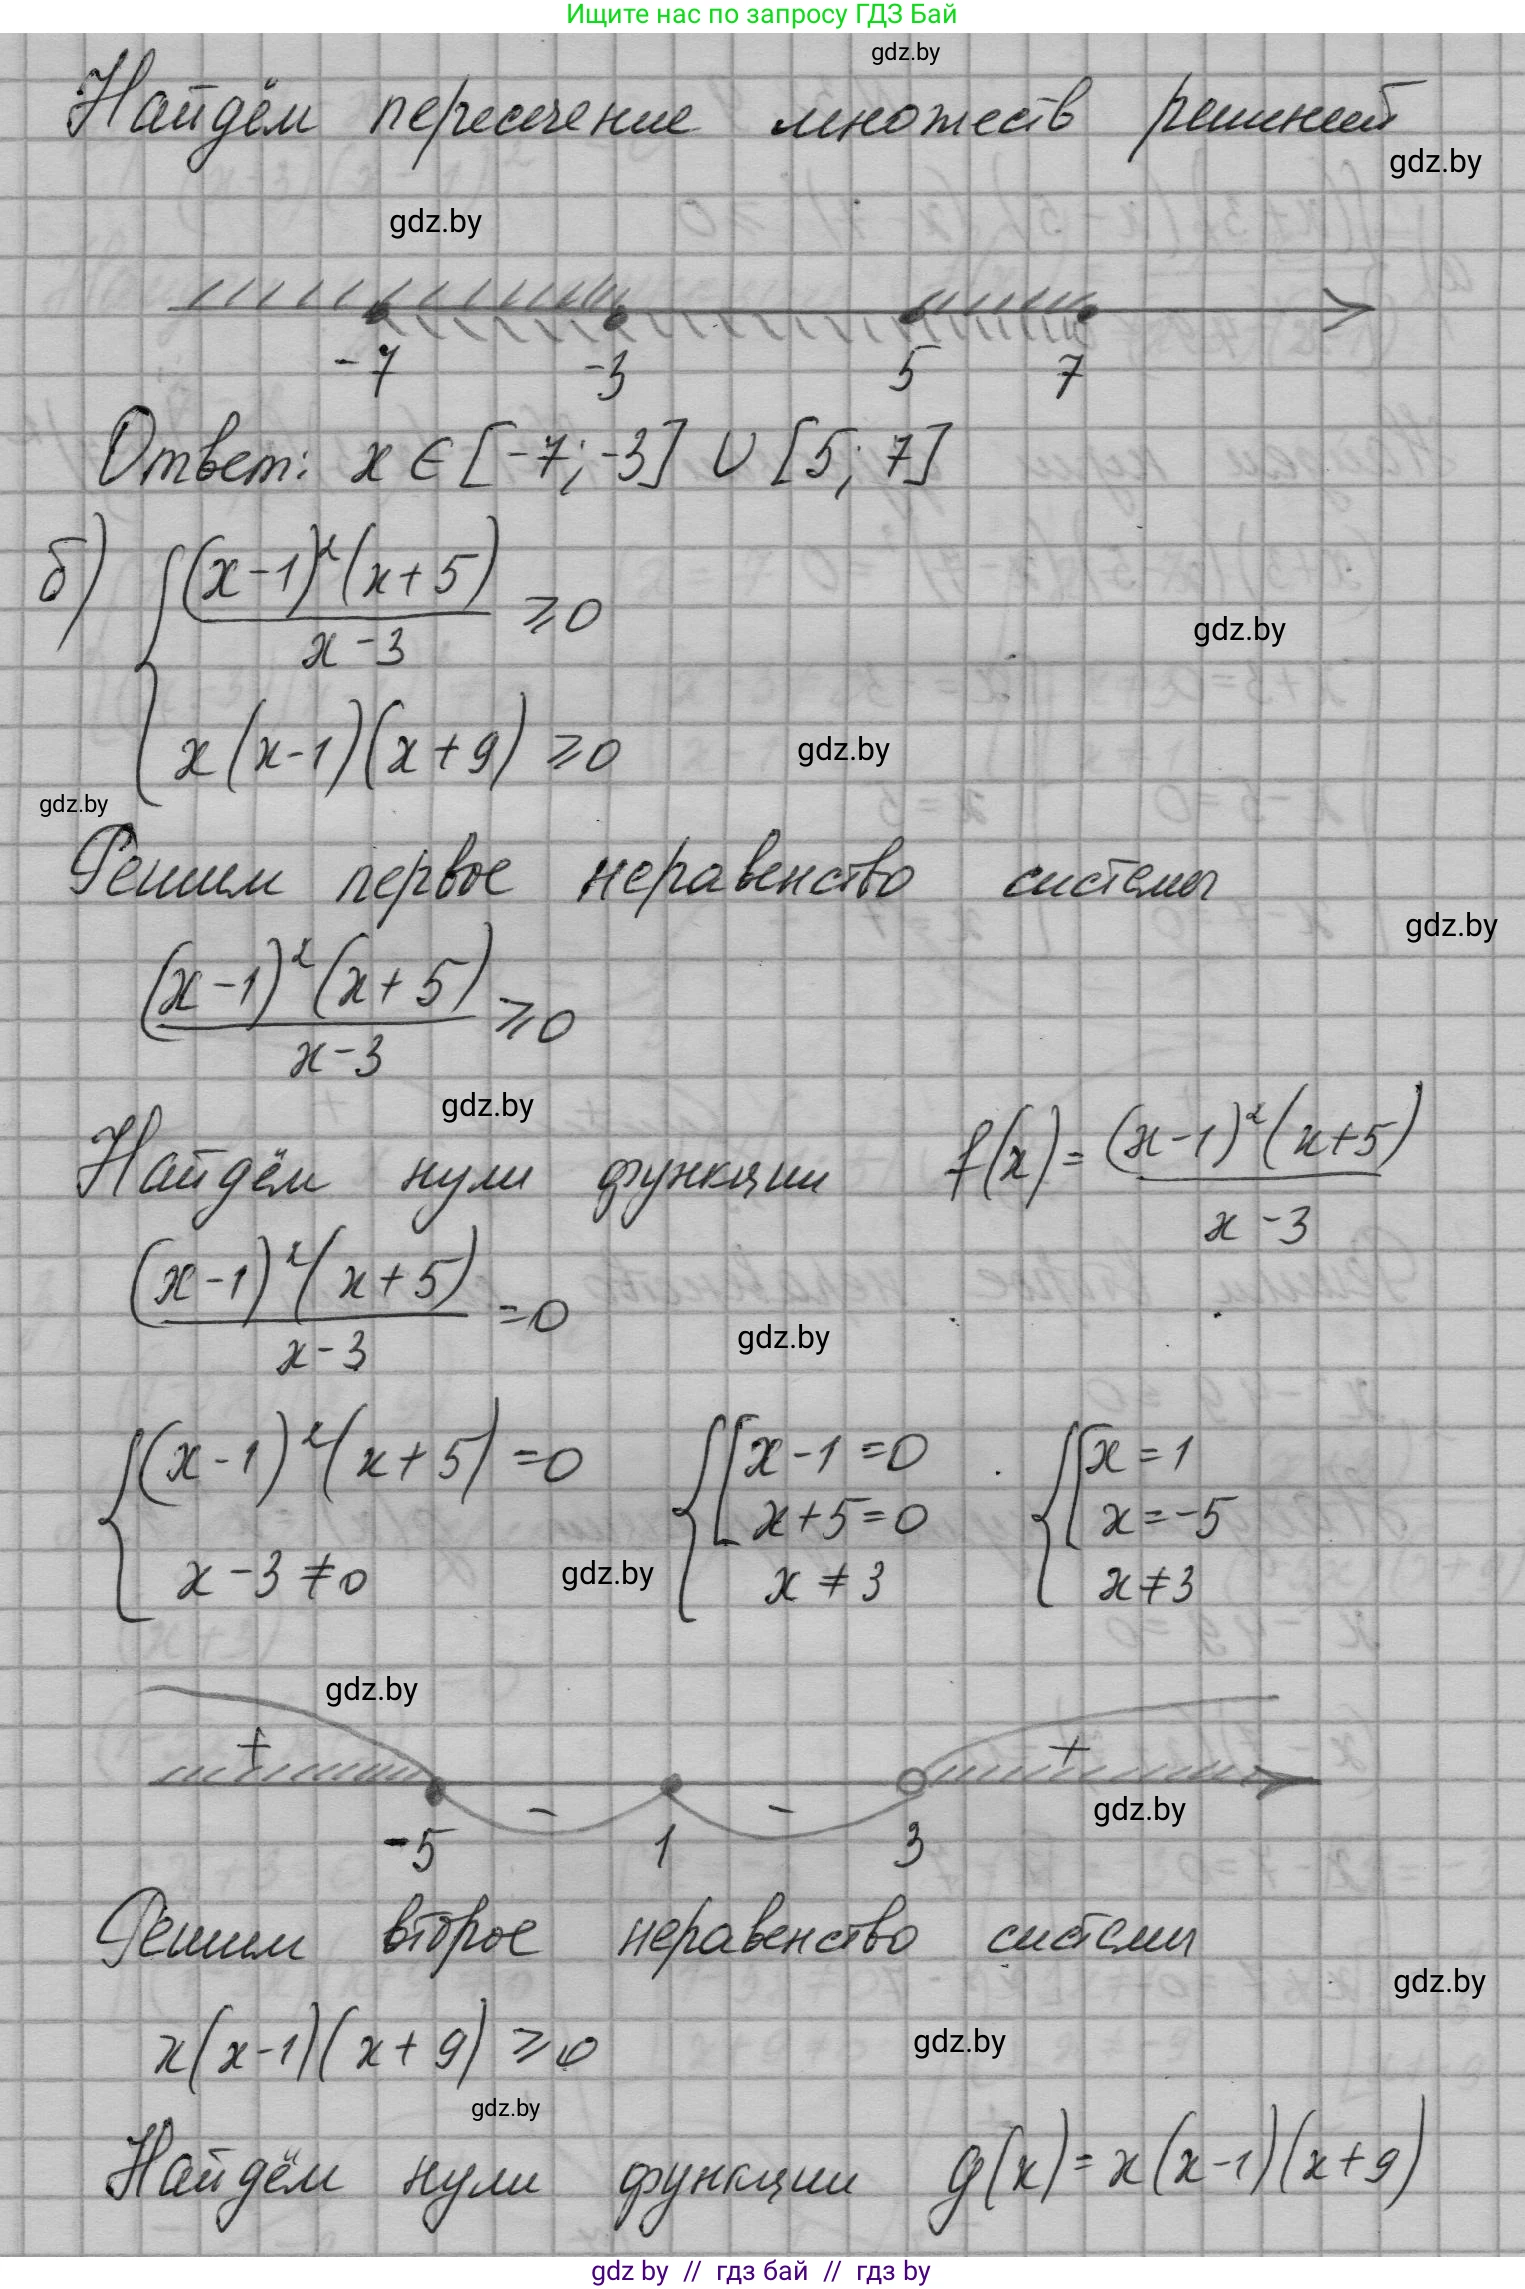 Ищите нас по запросу ГДЗ Бай
gdz.by
Найдём пересечение множеств решений
gdz.by
gdz.by
-7 -3 5 7
Ответ: x ∈ [-7; -3] ∪ [5; 7]
б) { (x-1)²(x+5) / x-3 ≥ 0
gdz.by
x(x-1)(x+9) ≥ 0
gdz.by
gdz.by
Решим первое неравенство системы
gdz.by
(x-1)²(x+5) / x-3 ≥ 0
gdz.by
Найдём нули функции f(x) = (x-1)²(x+5) / x-3
(x-1)²(x+5) / x-3 = 0
gdz.by
{ (x-1)²(x+5) = 0 { [ x-1=0 { [ x=1
x+5=0 x=-5
x-3≠0 gdz.by x≠3 x≠3
gdz.by
+ - - +
gdz.by
-5 1 3
Решим второе неравенство системы
gdz.by
x(x-1)(x+9) ≥ 0
gdz.by
gdz.by
Найдём нули функции g(x) = x(x-1)(x+9)
gdz by // гдз бай // гдз by